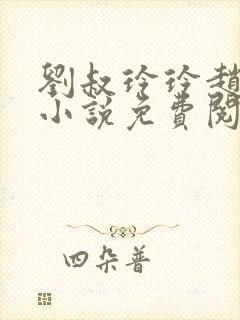 劉叔玲玲趙
小說免費閱
四朵普